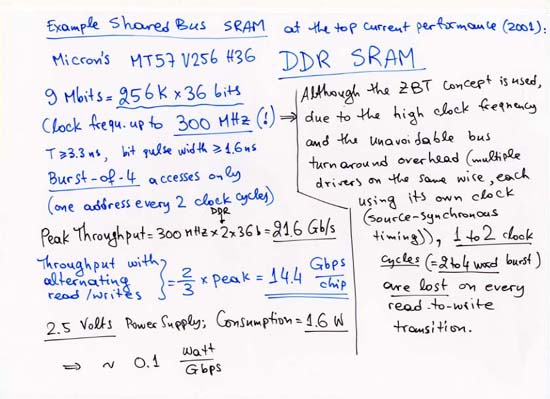 Example Shared Bus SRAM at the top current performance (2001):
Micron's MT57 V256 H36 DDR SRAM
9 Mbits = 256K x 36 bits
Clock frequ. up to 300 MHz (!) ⇒
T ≥ 3.3 ns, bit pulse width ≥ 1.6 ns
Burst-of-4 accesses only
(one address every 2 clock cycles)
DDR
↓
Peak Throughput = 300 MHz x 2 x 36 b = 21.6 Gb/s
Throughput with
alternating
read/writes } = 2/3 x peak = 14.4 Gbps/chip
2.5 Volts Power Supply; Consumption = 1.6 W
⇒ ~ 0.1 Watt/Gbps
Although the ZBT concept is used,
due to the high clock freqnency
and the unavoidable bus
turn around overhead (multiple
drivers on the same wire, each
using its own clock
(source-synchronous
timing)), 1 to 2 clock
cycles (= 2 to 4 word burst)
are lost on every
read-to-write
transition.